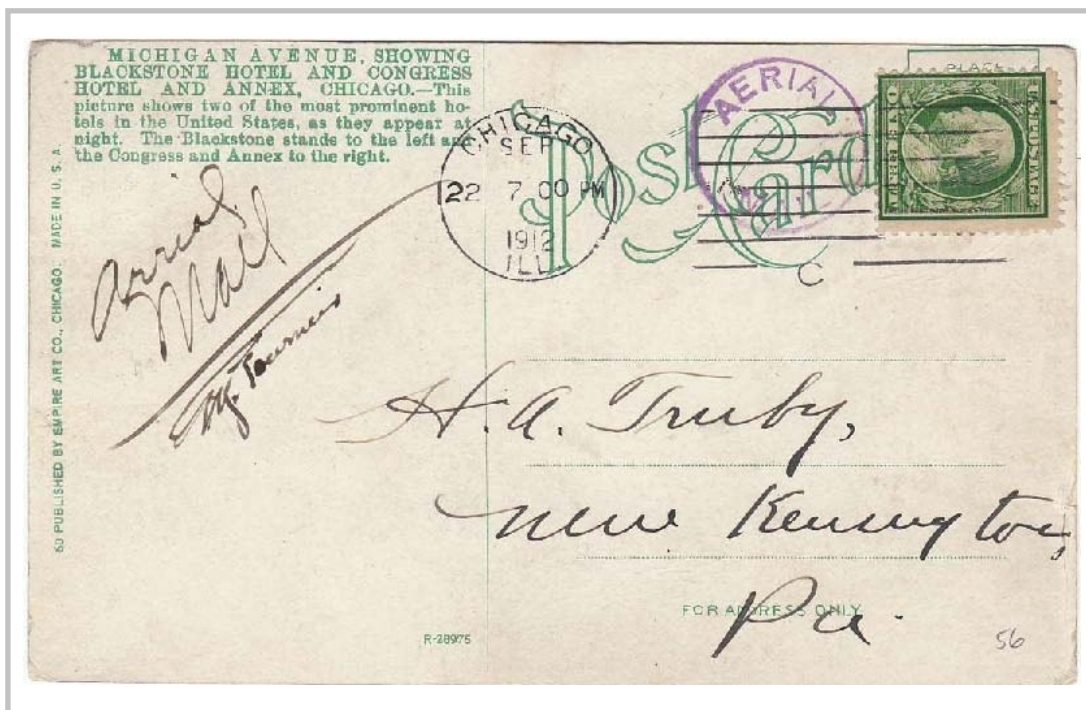 MICHIGAN AVENUE, SHOWING
BLACKSTONE HOTEL AND CONGRESS
HOTEL AND ANNEX, CHICAGO.—This
picture shows two of the most prominent ho-
tels in the United States, as they appear at
night. The Blackstone stands to the left and
the Congress and Annex to the right.
60 PUBLISHED BY EMPIRE ART CO., CHICAGO. MADE IN U. S. A.
Aerial
Mail
CHICAGO
SEP
22 7 00 PM
1912
ILL
AERIAL
Post Card
PLACE
U.S. POSTAGE
C
H. A. Truby,
New Kensington,
Pa.
FOR ADDRESS ONLY
R-28975
56